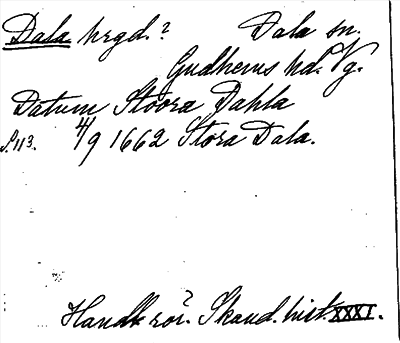 Dala hrgd.? Dala sn.
Gudhems hd. Vg.
Datum Stoora Dahla
S. 113. 4/9 1662 Stora Dala.
Handl. rör. Skand. hist. XXXI.